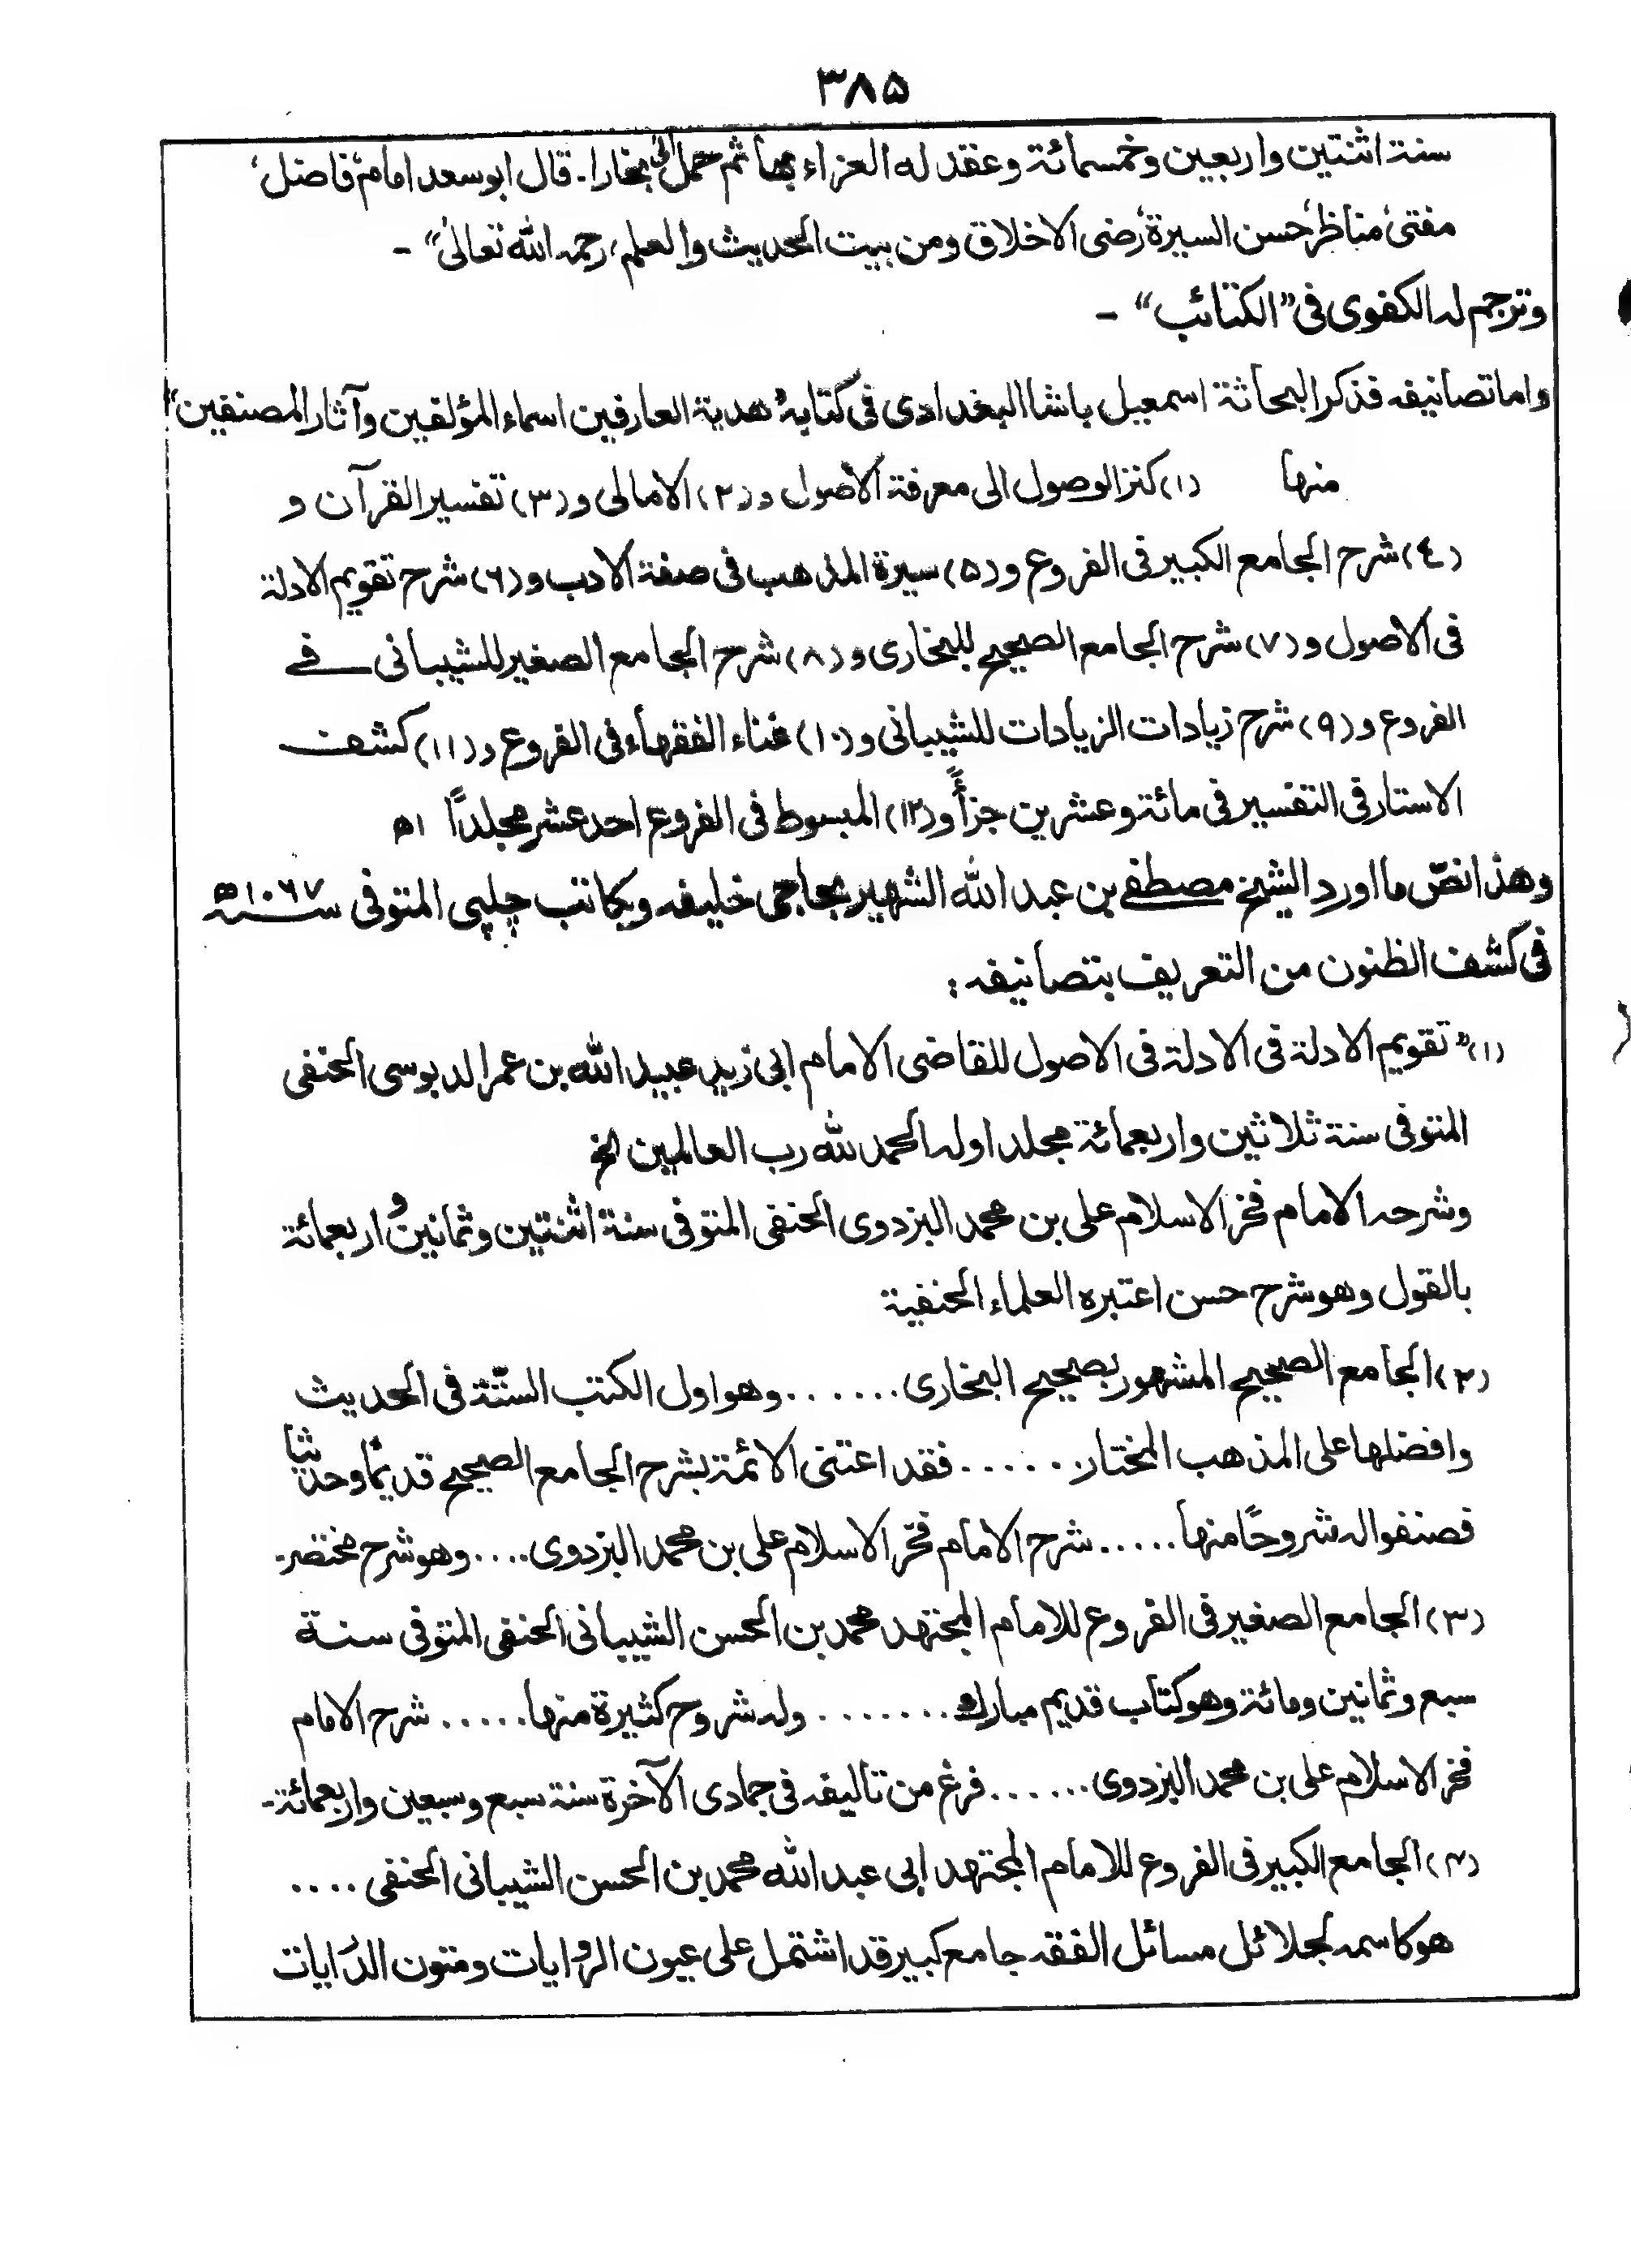 ٣٨٥
سنة اثنتين واربعين وخمسمائة وعقد له العزاء بها ثم حمل الى بخارا. قال ابو سعد امام فاضل،
مفتی، مناظر، حسن السيرة، رضی الاخلاق ومن بيت الحديث والعلم، رحمه الله تعالیٰ" -
وترجم له الكفوی فی "الكتائب" -
واما تصانيفه فذكر البحاثة اسمعيل باشا البغدادی فی كتابه "هدية العارفين اسماء المؤلفين وآثار المصنفين"
منها (١) كنز الوصول الی معرفة الأصول و (٢) الامالی و (٣) تفسير القرآن و
(٤) شرح الجامع الكبير فی الفروع و (٥) سيرة المذهب فی صفة الادب و (٦) شرح تقويم الادلة
فی الاصول و (٧) شرح الجامع الصحيح للبخاری و (٨) شرح الجامع الصغير للشيبانی فے
الفروع و (٩) شرح زيادات الزيادات للشيبانی و (١٠) غناء الفقهاء فی الفروع و (١١) كشف
الاستار فی التفسير فی مائة وعشرين جزأً و (١٢) المبسوط فی الفروع احد عشر مجلداً اه
وهذا نصّ ما اورد الشيخ مصطفے بن عبد الله الشهير بحاجی خليفه وبكاتب چلپی المتوفی سنة ١٠٦٧ه
فی كشف الظنون من التعريف بتصانيفه :
(١) "تقويم الادلة فی الادلة فی الاصول للقاضی الامام ابی زيد عبيد الله بن عمر الدبوسی الحنفی
المتوفی سنة ثلاثين واربعمائة مجلد اوله الحمد لله رب العالمين الخ
وشرحه الامام فخر الاسلام علی بن محمد البزدوی الحنفی المتوفی سنة اثنتين وثمانين و اربعمائة
بالقول وهو شرح حسن اعتبره العلماء الحنفية
(٢) الجامع الصحيح المشهور بصحيح البخاری ...... وهو اول الكتب الستّة فی الحديث
وافضلها علی المذهب المختار ...... فقد اعتنی الائمة بشرح الجامع الصحيح قديمًا وحديثا
فصنفوا له شروحًا منها ..... شرح الامام فخر الاسلام علی بن محمد البزدوی .... وهو شرح مختصر-
(٣) الجامع الصغير فی الفروع للامام المجتهد محمد بن الحسن الشيبانی الحنفی المتوفی سنة
سبع وثمانين ومائة وهو كتاب قديم مبارك ....... وله شروح كثيرة منها ..... شرح الامام
فخر الاسلام علی بن محمد البزدوی ...... فرغ من تاليفه فی جمادی الآخرة سنة سبع وسبعين واربعمائة-
(۴) الجامع الكبير فی الفروع للامام المجتهد ابی عبد الله محمد بن الحسن الشيبانی الحنفی ....
هو كاسمه لجلائل مسائل الفقه جامع كبير قد اشتمل علی عيون الروايات ومتون الدرايات